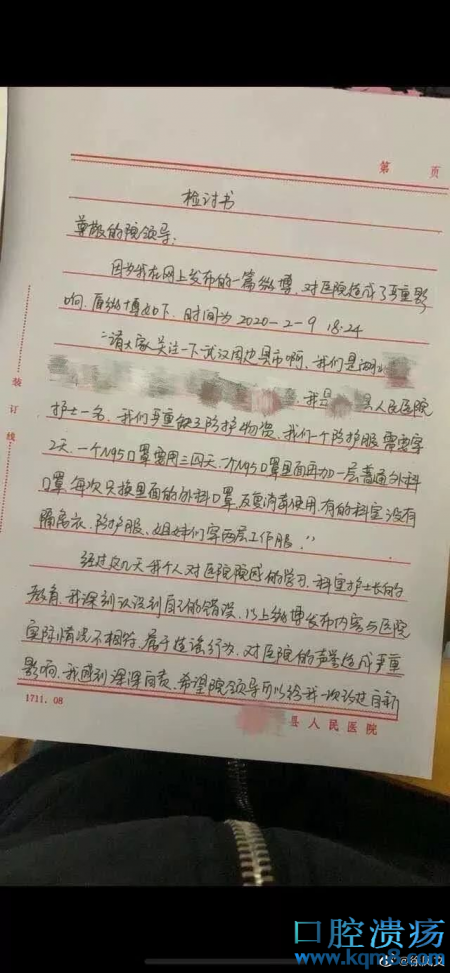 第 页
检讨书
尊敬的院领导:
因为我在网上发布的一篇微博,对医院造成了严重影
响,原微博如下,时间为2020-2-9 18:24
"请大家关注一下武汉周边县市啊,我们是湖
,我是 县人民医院
护士一名,我们严重缺乏防护物资,我们一个防护服需要穿
2天,一个N95口罩要用三四天,个N95口罩里面再加一层普通外科
口罩,每次只换里面的外科口罩,反复消毒使用,有的科室没有
隔离衣、防护服、姐妹们穿两层工作服。"
经过这几天我个人对医院院感的学习,科室护士长的
教育,我深刻认识到自己的错误,以上微博发布内容与医院
实际情况不相符,属于造谣行为,对医院的声誉造成严重
影响,我感到深深自责,希望院领导可以给我一次改过自新
装订线
1711.08
县人民医院
口腔溃疡